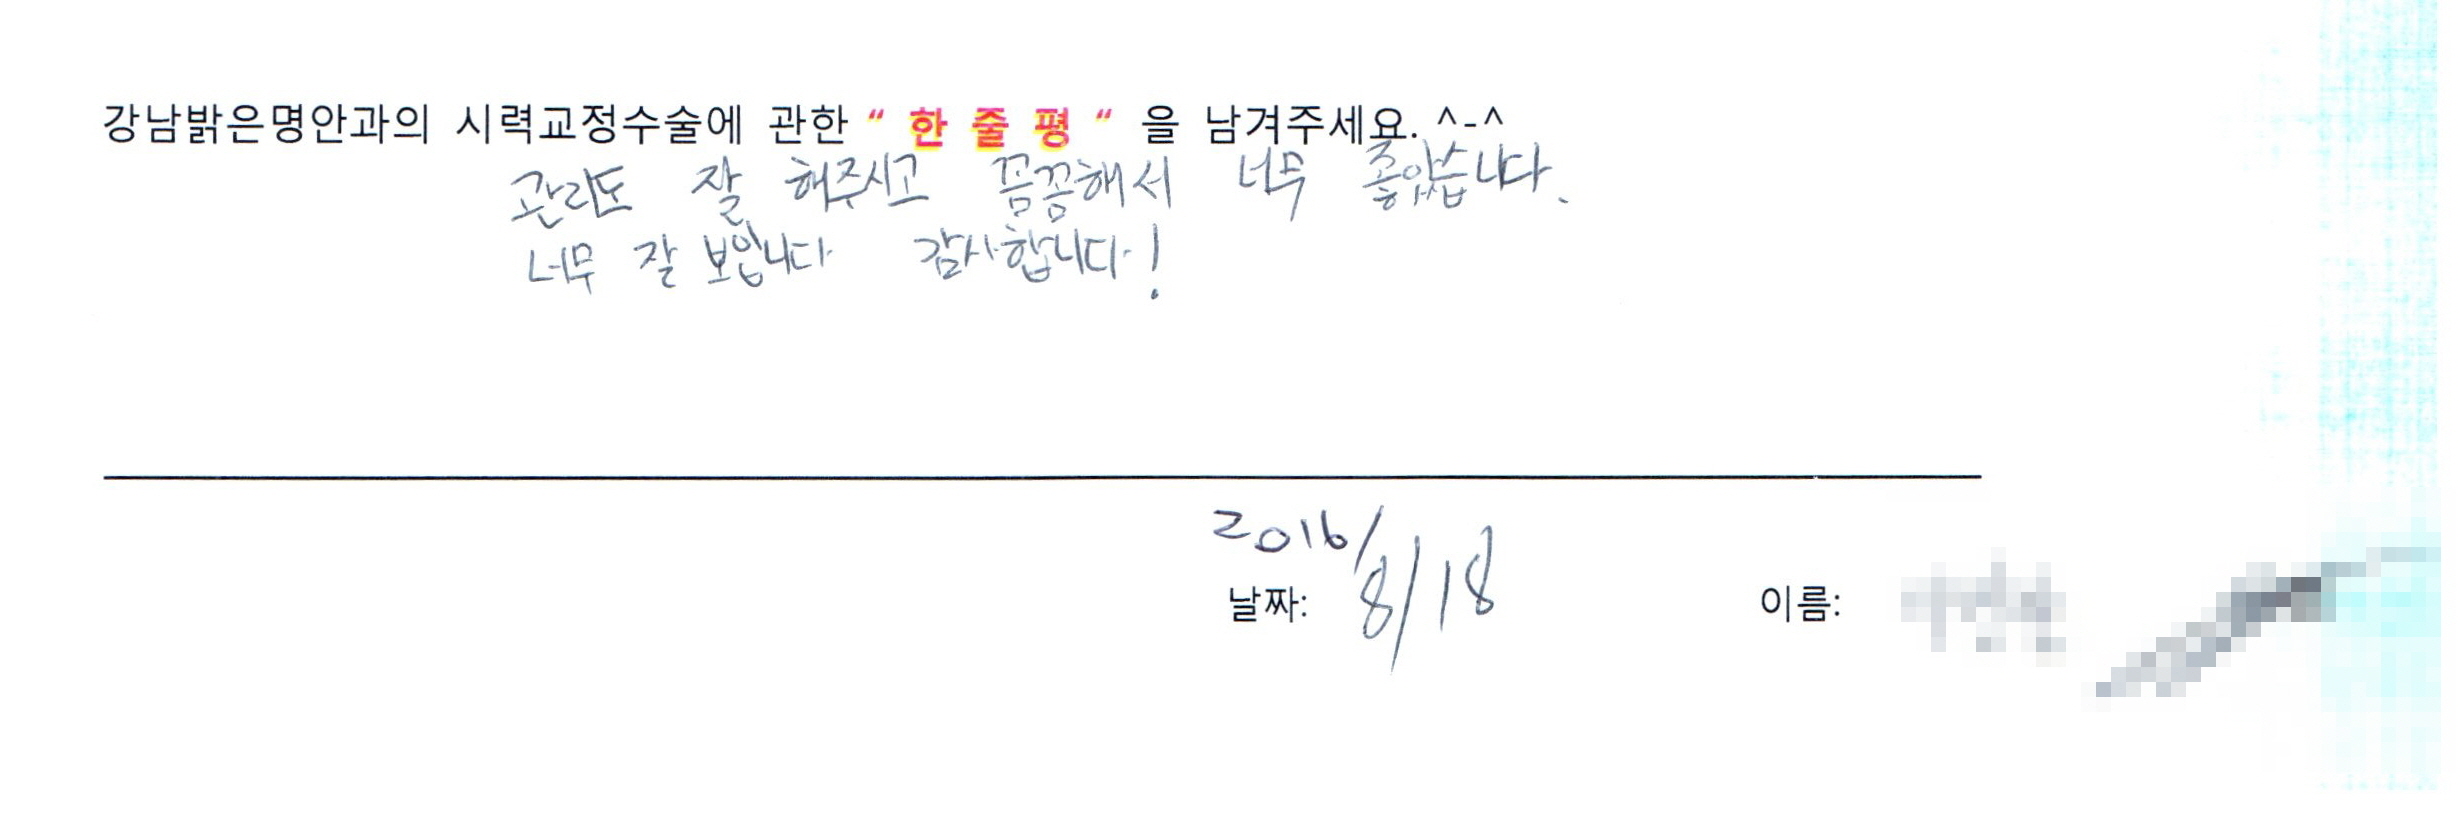 강남밝은명안과의 시력교정수술에 관한 “ 한 줄 평 “ 을 남겨주세요. ^-^
관리도 잘 해주시고 꼼꼼해서 너무 좋았습니다.
너무 잘 보입니다. 감사합니다.!
2016/
날짜: 8/18 이름: